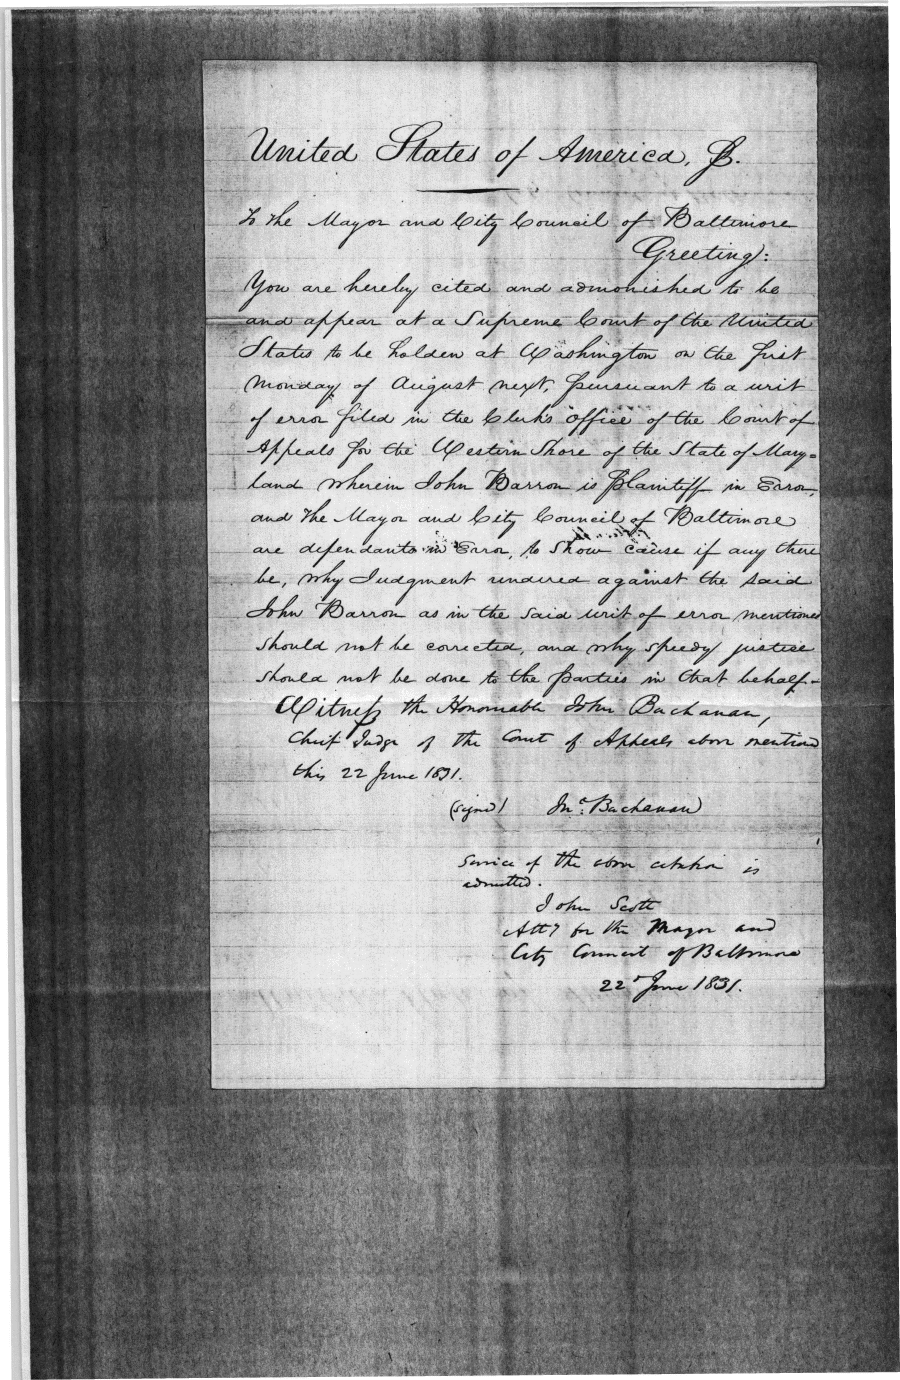 United States of America, Ss.
To the Mayor and City Council of Baltimore
Greeting:
You are hereby cited and admonished to be
and appear at a Supreme Court of the United
States to be holden at Washington on the first
Monday of August next, pursuant to a writ
of error filed in the Clerk's Office of the Court of
Appeals for the Western Shore of the State of Mary=
land wherein John Barron is Plaintiff in Error,
and the Mayor and City Council of Baltimore
are defendants in Error, to show cause if any there
be, why Judgment rendered against the said
John Barron as in the said writ of error mentioned
should not be corrected, and why speedy justice
should not be done to the parties in that behalf-
Witness the Honourable John Buchanan,
Chief Judge of the Court of Appeals above mentioned
this 22 June 1831.
(signed) Jno. Buchanan
Service of the above citation is
admitted.
John Scott
Atty for the Mayor and
City Council of Baltimore
22d June 1831.